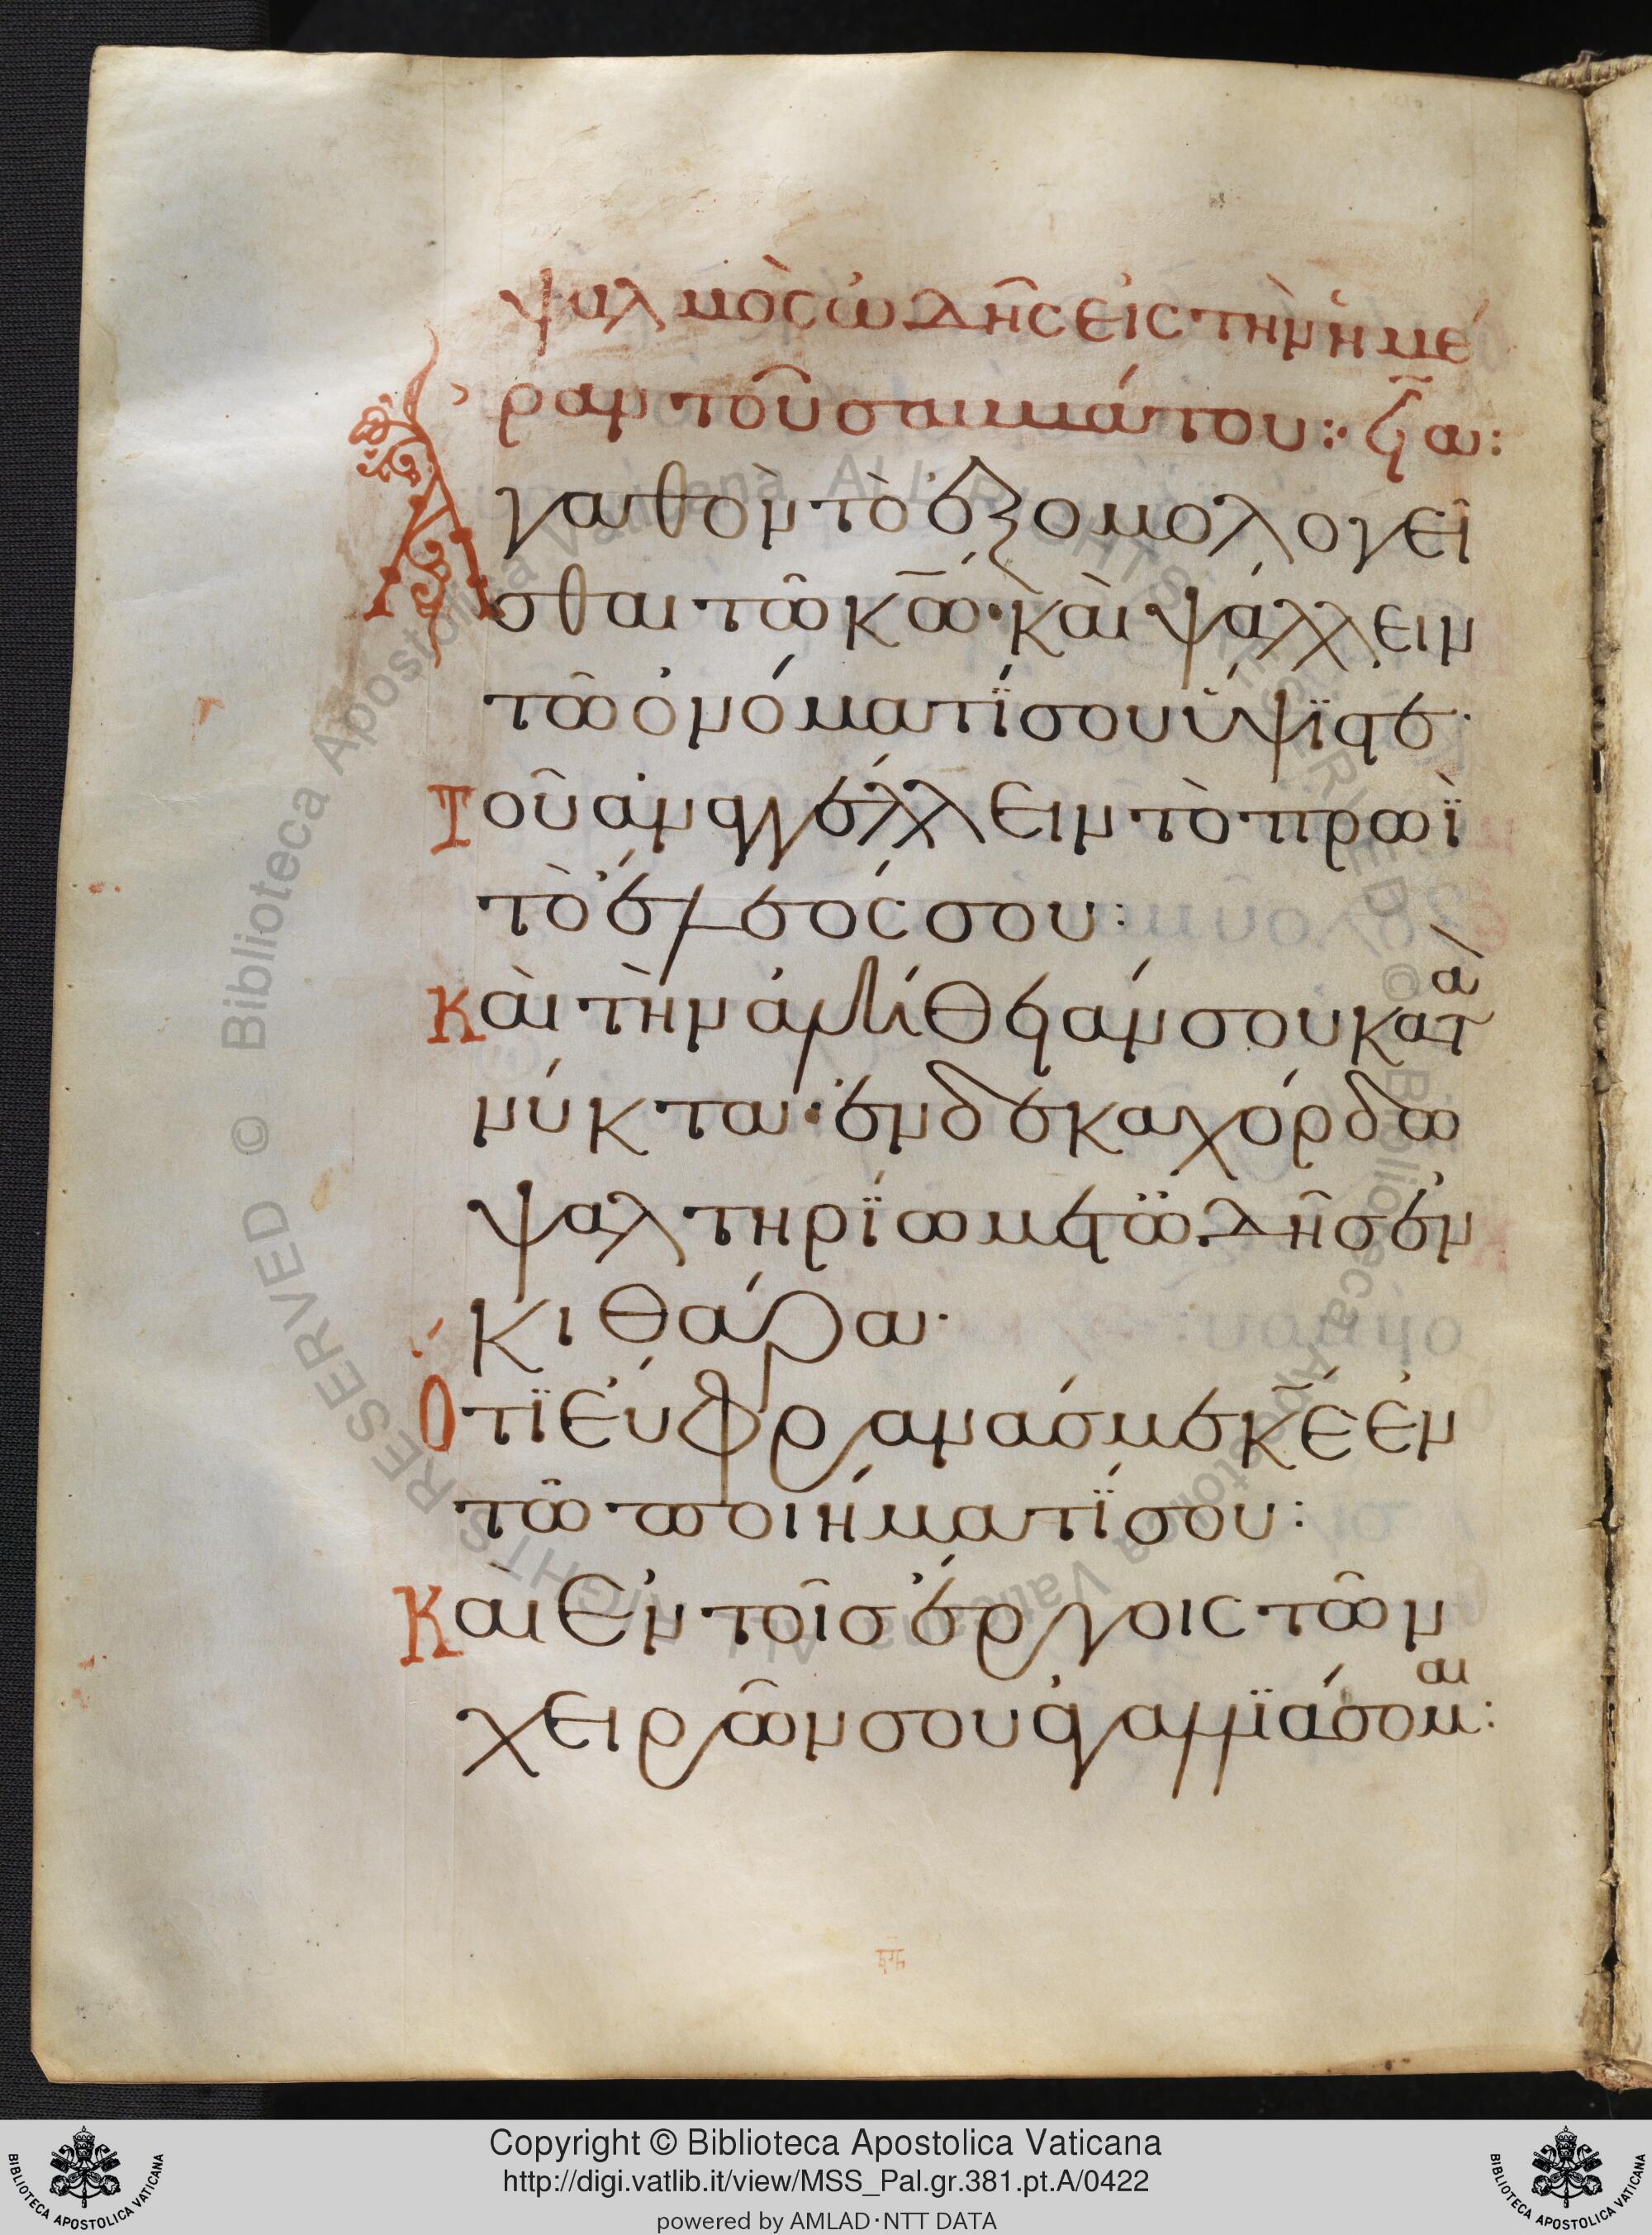 ψαλμὸς ὠδῆς εἰς τὴν ἡμέ
ραν τοῦ σαββάτου: ϟα:
Ἀγαθὸν τὸ ἐξομολογεῖ
σθαι τῶ κ̅ω̅· καὶ ψάλλειν
τῶ ὀνόματί σου ὕψιστε·
Τοῦ ἀναγγέλλειν τὸ πρωῒ
τὸ ἔλεός σου:
Καὶ τὴν ἀλήθειάν σου κατὰ
νύκτα· ἐν δεκαχόρδω
ψαλτηρίω μετ ὠδῆσ ἐν
κιθάρα·
Ὅτι εὔφρανάσ με κ̅ε̅ ἐν
τῶ ποιήματί σου:
Καὶ ἐν τοῖσ ἔργοις τῶν
χειρῶν σου ἀγαλλιάσομαι:
Copyright © Biblioteca Apostolica Vaticana
http://digi.vatlib.it/view/MSS_Pal.gr.381.pt.A/0422
powered by AMLAD·NTT DATA
BIBLIOTECA APOSTOLICA VATICANA
BIBLIOTECA APOSTOLICA VATICANA
© Biblioteca Apostolica Vaticana ALL RIGHTS RESERVED © Biblioteca Apostolica Vaticana ALL RIGHTS RESERVED